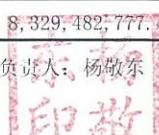 8,329,482,777.
负责人：杨敬东
东杨
印敬